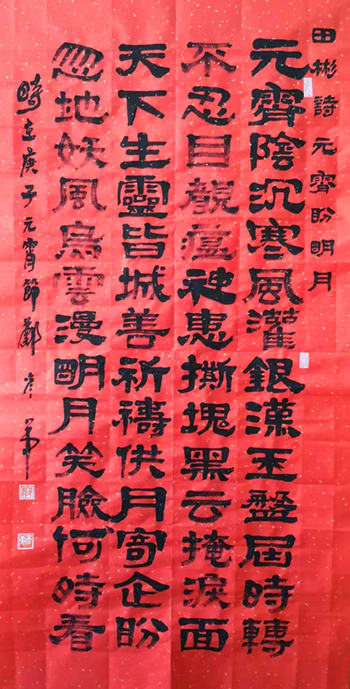 田彬詩 元宵盼明月
元宵陰沉寒風灌銀漢玉盤屆時轉
不忍目覩瘟神患撕塊黑云掩淚面
天下生靈皆城善祈禱供月寄企盼
忽地妖風烏雲漫明月笑臉何時看
時在庚子元宵節